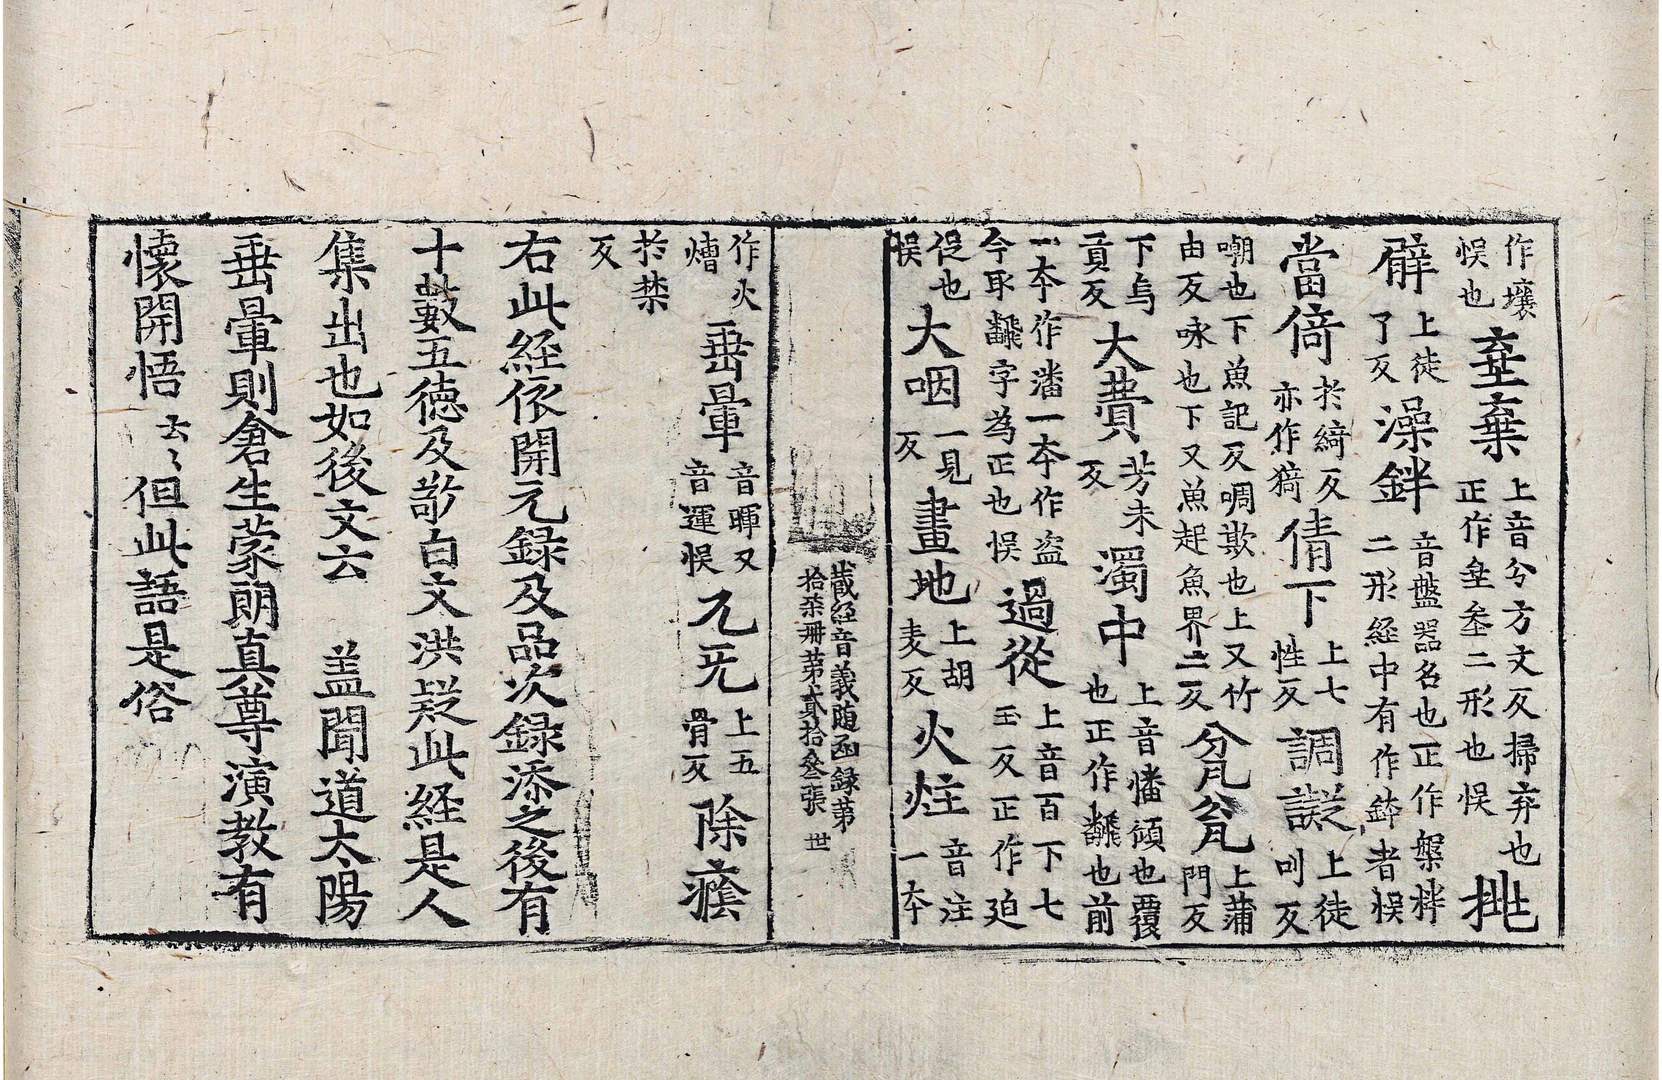 作壤悮也 𡊄棄 上音兮方文反掃弃也正作坌坴二形也悮 挑
擗 上徒了反 澡鉡 音盤器名也正作槃柈二形經中有作鉢者悮
當倚 於綺反亦作猗 倩下 上七性反 調譺 上徒叫反
嘲也下魚記反啁欺也上又竹由反咏也下又魚起魚界二反 瓫瓮 上蒲門反
下烏貢反 大費 芳未反 濁中 上音幡傾也覆也正作飜也前
一本作潘一本作盜今取飜字為正也悮 過從 上音百下七玊反正作迫
促也悮 大咽 一見反 畫地 上胡麦反 火炷 音注一本
藏経音義随函録第拾柒冊苐貳拾叄張 世
作火燼 垂暈 音暉又音運悮 兀旡 上五骨反 除癊
於禁反
右此経依開元録及品次録添之後有
十數五徳及㪅白文洪疑此経是人
集出也如後文云 盖聞道太陽
垂暈則倉生蒙朗真尊演教有
懐開悟云〻但此語是俗